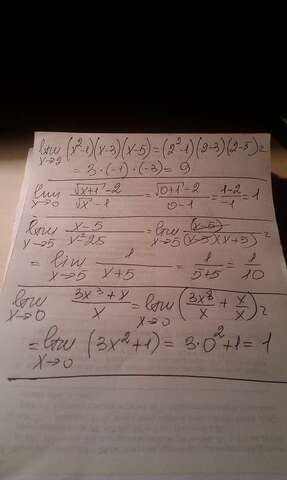 lim x→2 (x²-1)(x-3)(x-5) = (2²-1)(2-3)(2-5) =
= 3·(-1)·(-3) = 9
lim x→0 (√(x+1) - 2)/(√x - 1) = (√(0+1) - 2)/(0-1) = (1-2)/(-1) = 1
lim x→5 (x-5)/(x²-25) = lim x→5 (x-5)/((x-5)(x+5)) =
= lim x→5 1/(x+5) = 1/(5+5) = 1/10
lim x→0 (3x³+x)/x = lim x→0 (3x³/x + x/x) =
= lim x→0 (3x²+1) = 3·0²+1 = 1